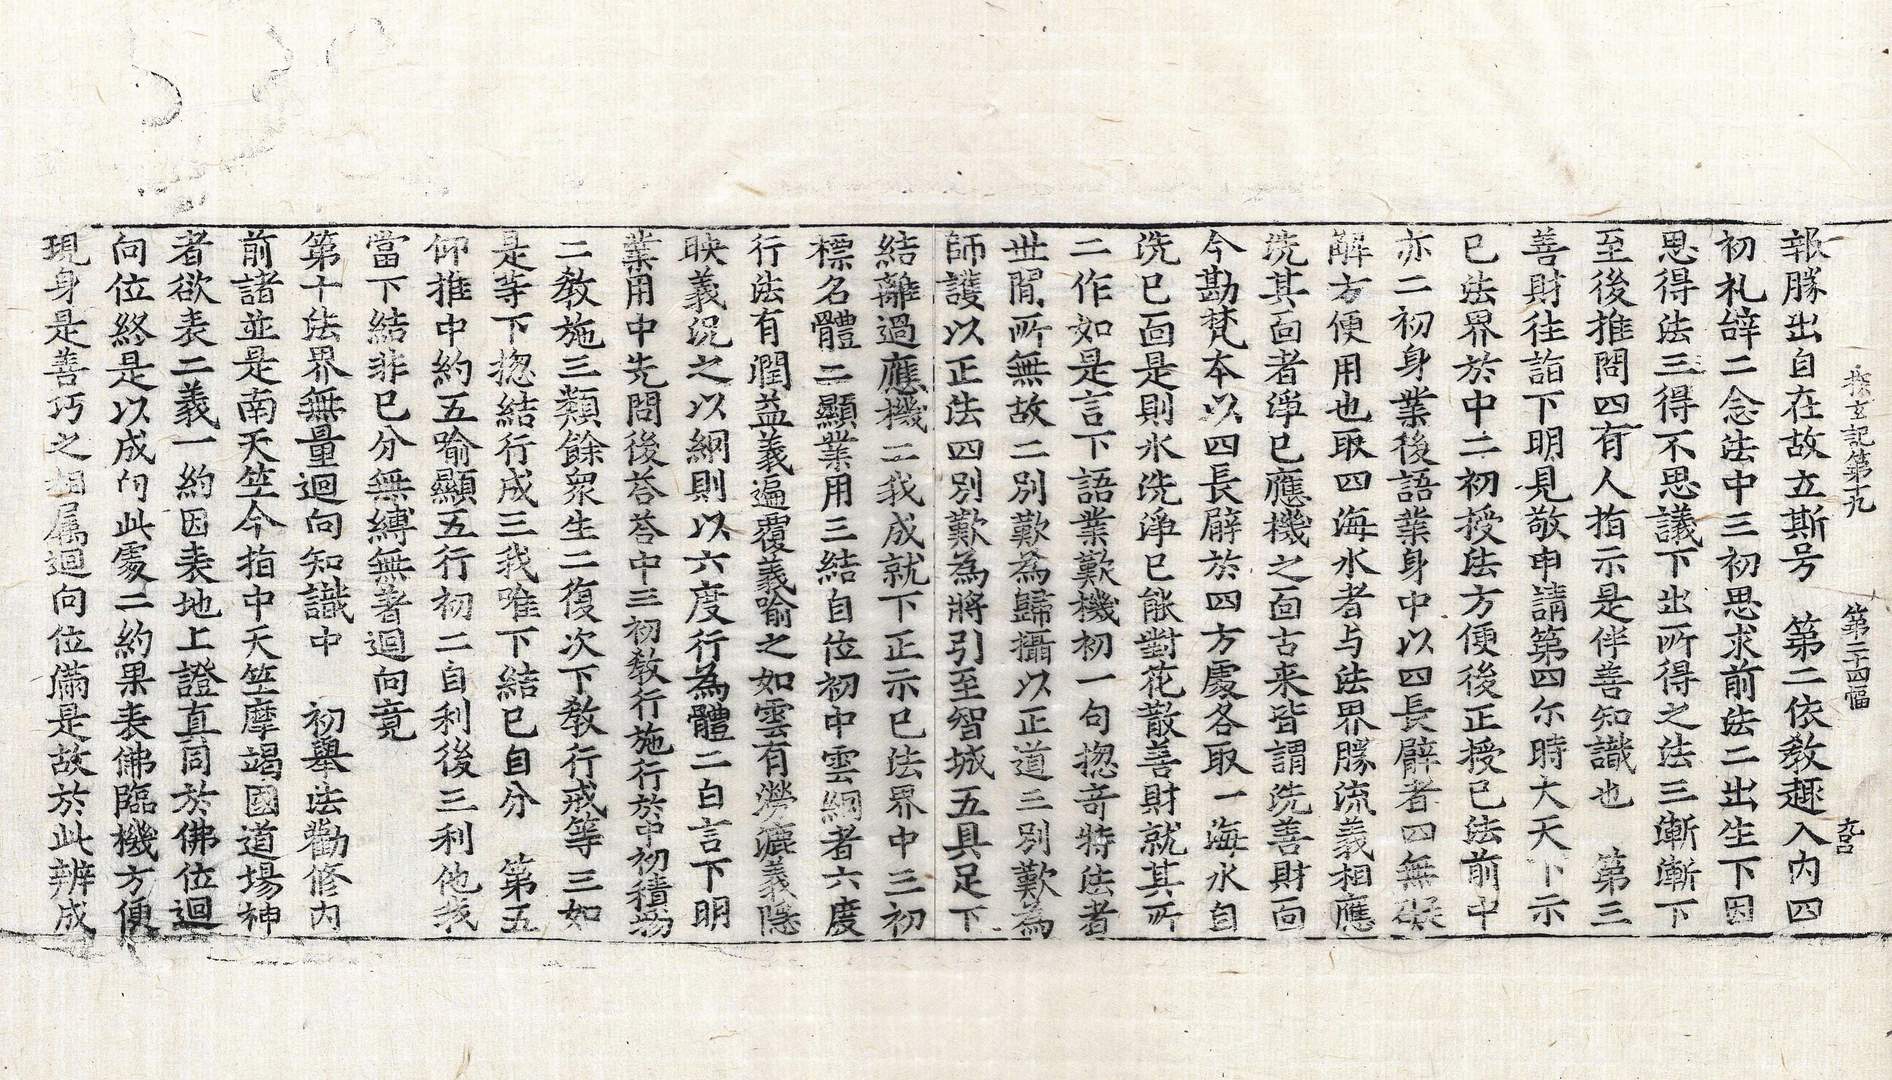 探玄記第十九　第二十四幅　吕
報勝出自在故立斯号　第二依教趣入内四
初礼辝二念法中三初思求前法二出生下因
思得法三得不思議下出所得之法三漸漸下
至後推問四有人指示是伴善知識也　第三
善財往詣下明見敬申請第四尓時大天下示
已法界於中二初授法方便後正授已法前中
亦二初身業後語業身中以四長臂者四無礙
解方便用也取四海水者与法界勝流義相應
洗其面者淨已應機之面古来皆謂洗善財面
今勘梵本以四長臂於四方處各取一海水自
洗已面是則水洗淨已能對花散善財就其所
二作如是言下語業歎機初一句揔竒特法者
世閒所無故二別歎為歸攝以正道三別歎為
師護以正法四別歎為將引至智城五具足下
結離過應機二我成就下正示已法界中三初
標名體二顯業用三結自位初中雲網者六度
行法有潤益義遍覆義喻之如雲有漉義隱
映義況之以網則以六度行為體二白言下明
業用中先問後荅荅中三初教行施行於中初積物
二教施三類餘衆生二復次下教行戒等三如
是等下揔結行成三我唯下結已自分　第五
仰推中約五喻顯五行初二自利後三利他我
當下結非已分無縛無著迴向竟
第十法界無量迴向知識中　初舉法勸修内
前諸並是南天竺今指中天竺摩竭國道場神
者欲表二義一約因表地上證真同於佛位迴
向位終是以成向此處二約果表佛臨機方便
現身是善巧之相属迴向位滿是故於此辨成